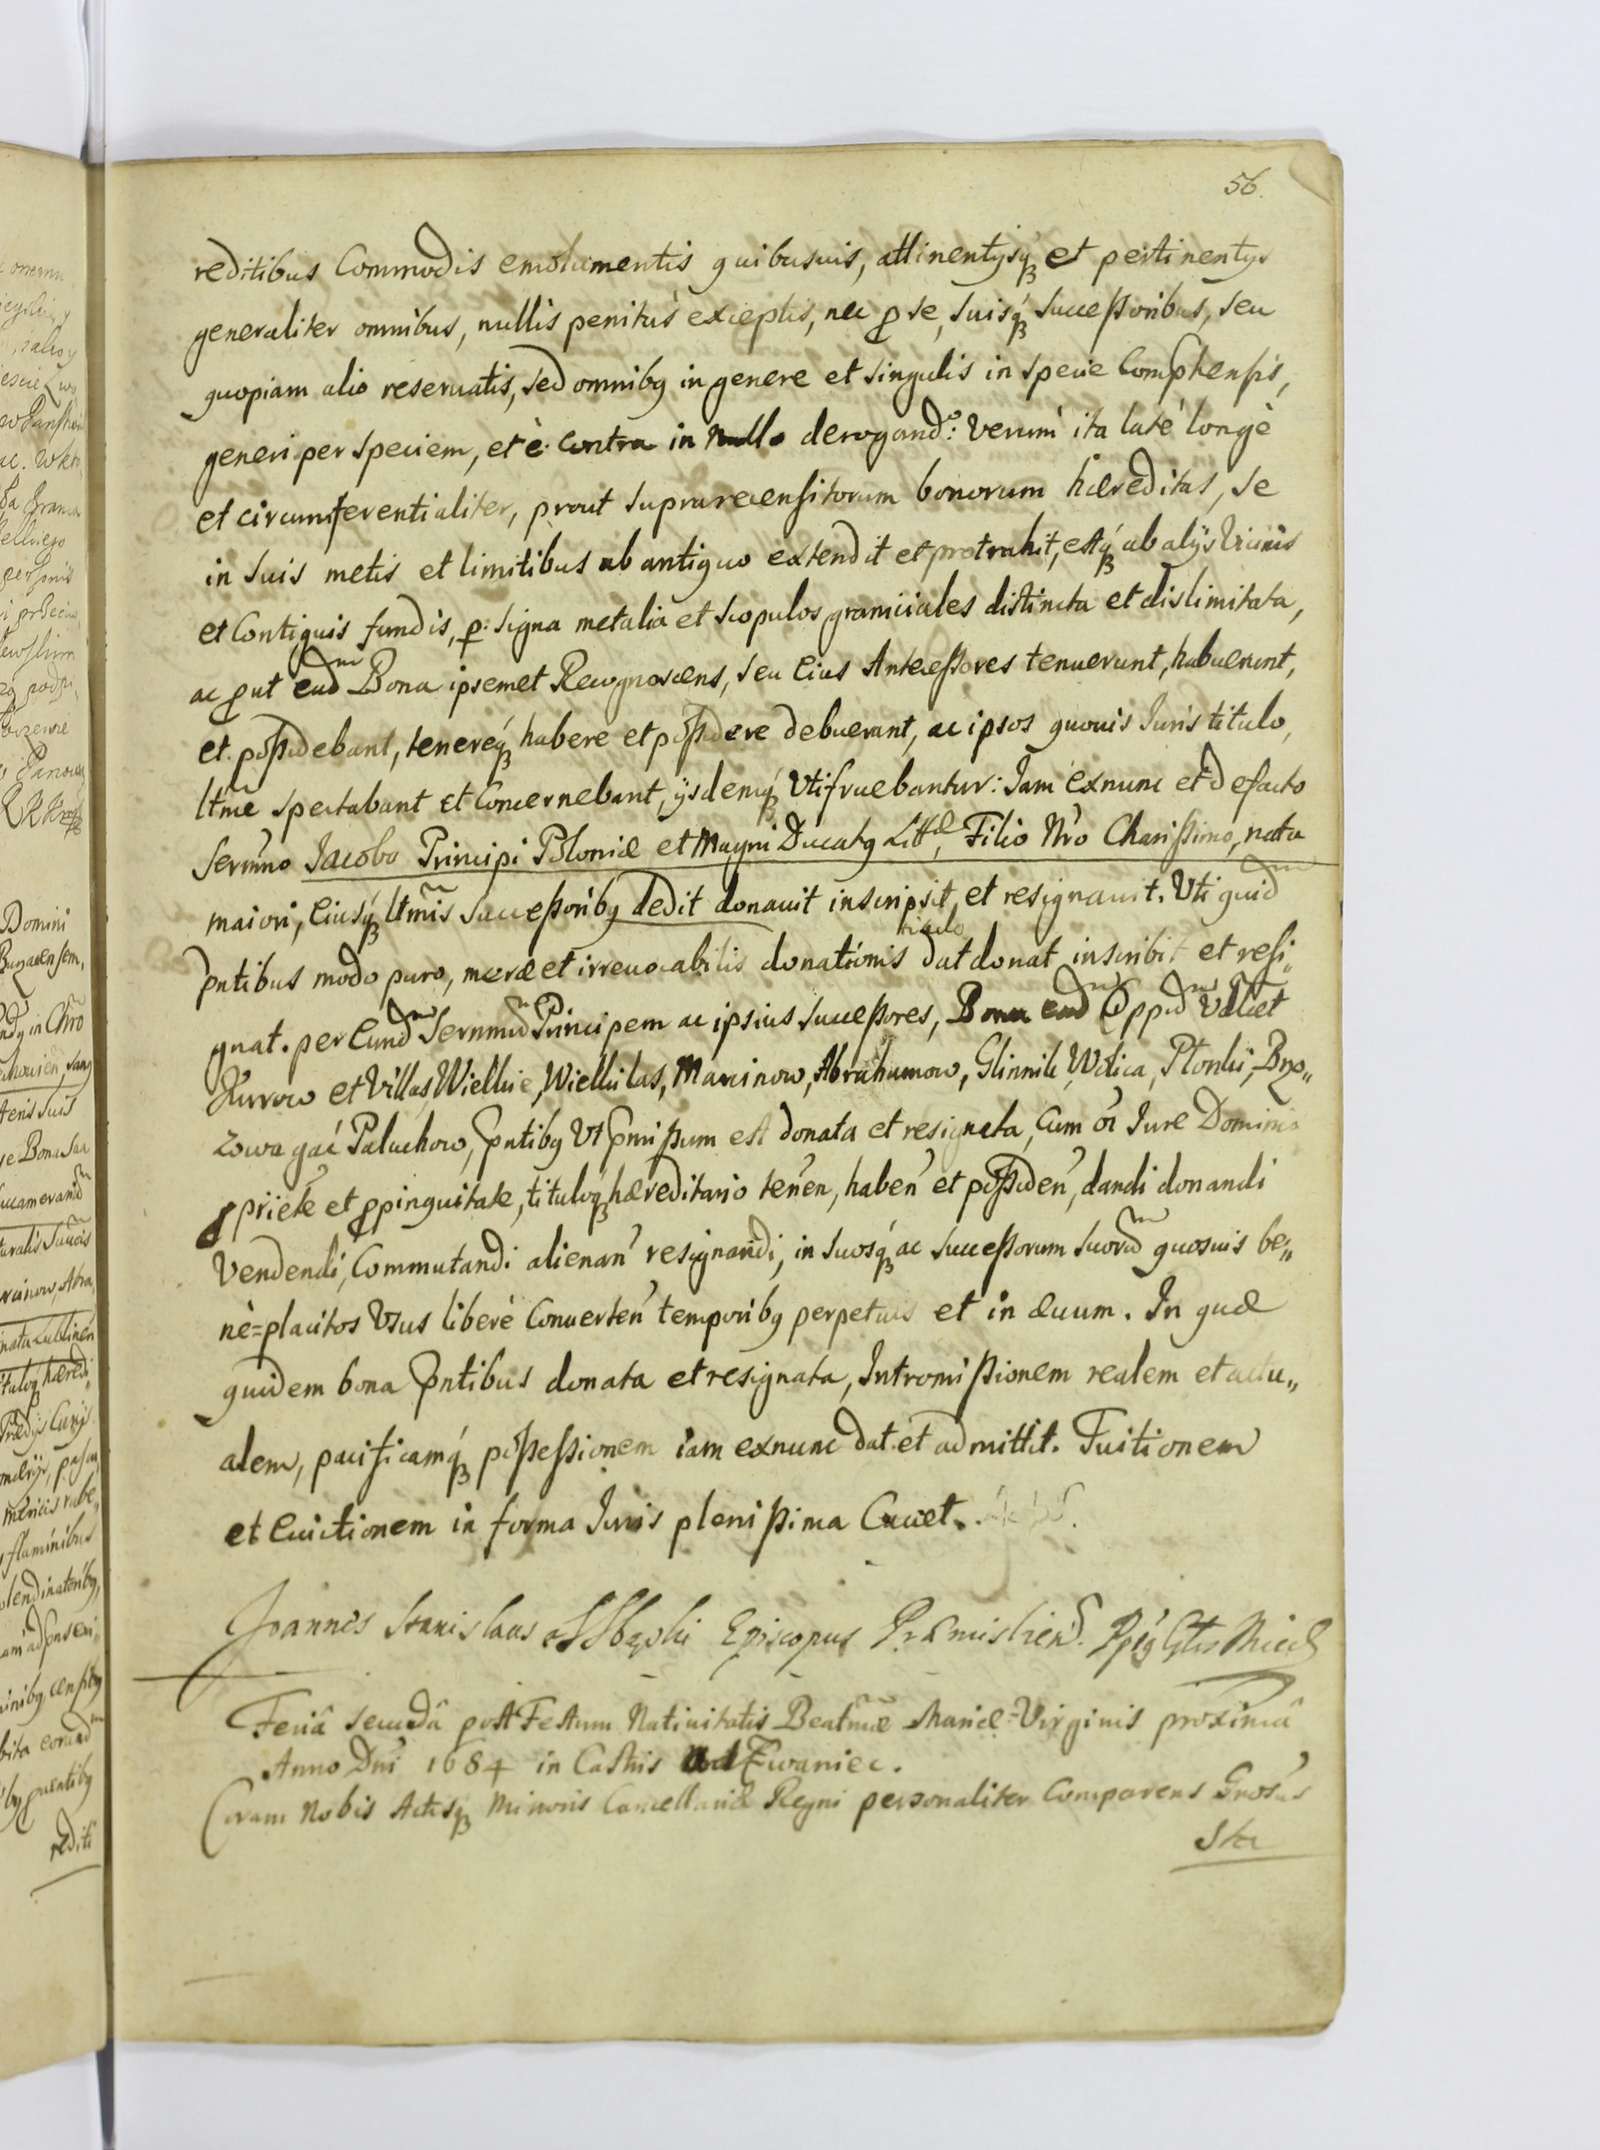 56.
reditibus Commodis emolumentis quibusuis, attinentijsqꝫ et pertinentijs
generaliter omnibus, nullis penitùs exceptis, nec ꝑ se, suisqꝫ successoribus, seu
quopiam alio reseruatis, sed omnibꝰ in genere et singulis in specie Comphensis,
generi per speciem, et è contra in nullo derogand̃: Verum ita latè longè
et circumferentialiter, prout suprarecensitorum bonorum hæreditas, se
in suis metis et limitibus ab antiquo extendit et protrahit, estqꝫ ab alijs Vicinis
et Contiguis fundis, ꝑ: signa metalia et scopulos graniciales distincta et dislimitata,
ac ꝓut ead̃m Bona ipsemet Recognoscens, seu Eius Antecessores tenuerunt, habuerunt,
et possidebant, tenereqꝫ habere et possidere debuerant, ac ipsos quouis Iuris titulo,
ltm̃e spectabant et Concernebant, ijsdemqꝫ Vtifruebantur: Iam exnunc et de facto
Serm̃no Jacobo Principi Poloniæ et Magni Ducatꝰ Litt̃æ, Filio Nr̃o Charissimo, natu
maiori, Eiusqꝫ ltm̃is Successoribꝰ dedit donauit inscripsit, et resignauit. Vti quid̃m
pñtibus modo puro, meræ et irreuocabilis donationis titulo dat donat inscribit et resi„
gnat. per Eund̃m Sernm̃ũ Principem ac ipsius successores, Bona ead̃m Oppid̃m Vdlcet
Kurow et Villas Wielkie, Wielkilas, Marcinow, Abrahamow, Glinnik, Wolica, Plonki, Brzo„
zowa gać Paluchow, pñtibꝰ Vt pm̃issum est donata et resignata, Cum oĩ Iure Dominio
ꝓpriete et ꝓpinquitate, tituloqꝫ hæreditario teneñ, habeñ et possideñ, dandi donandi
Vendendi, Commutandi alienañ resignandi, in suosqꝫ ac successorum suorũm quosuis be„
nè=placitos Vsus liberè Conuerteñ temporibꝰ perpetuis et in æuum. In quæ
quidem bona pñtibus donata et resignata, Intromissionem realem et actu„
alem, pacificamqꝫ possessionem iam exnunc dat et admittit. Tuitionem
et Euictionem in forma Iuris plenissima Cauet.
Joannes Stanislaus Zbąski Episcopus Præmislień.
Feriâ secundâ post Festum Natiuitatis Beatm̃æ Mariæ=Virginis proximâ
Anno Dnĩ 1684 in Castris ad Zwaniec.
Coram Nobis Actisqꝫ Minoris Cancellariæ Regni personaliter Comparens Gnosus
Sta